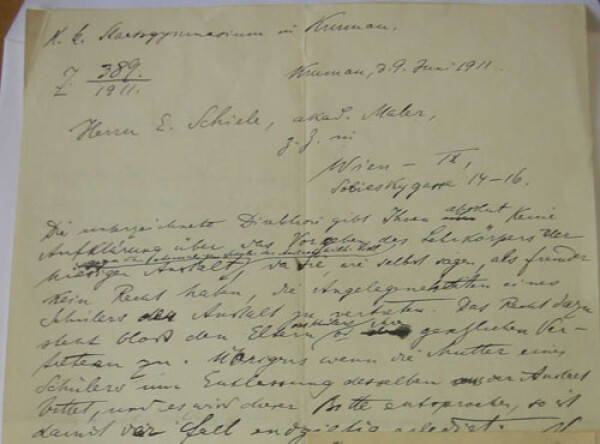 K. k. Staatsgymnasium in Krumau.
Z. 389.
1911.
Krumau, d. 9. Juni 1911.
Herrn E. Schiele, akad. Maler,
z. Z. in
Wien – IX,
Sobieskygasse 14–16.
Die unterzeichnete Direktion gibt Ihnen absolut keine
Aufklärung über das Vorgehen des Lehrkörpers der
hiesigen Anstalt, da Sie, wie selbst sagen, als fremder
kein Recht haben, die Angelegenheiten eines
Schülers der Anstalt zu vertreten. Das Recht dazu
steht bloß den Eltern gesetzlichen Ver-
tretern zu. Übrigens wenn die Mutter eines
Schülers um Entlassung desselben aus der Anstalt
bittet, und es wird dieser Bitte entsprochen, so ist
damit der Fall endgiltig erledigt.